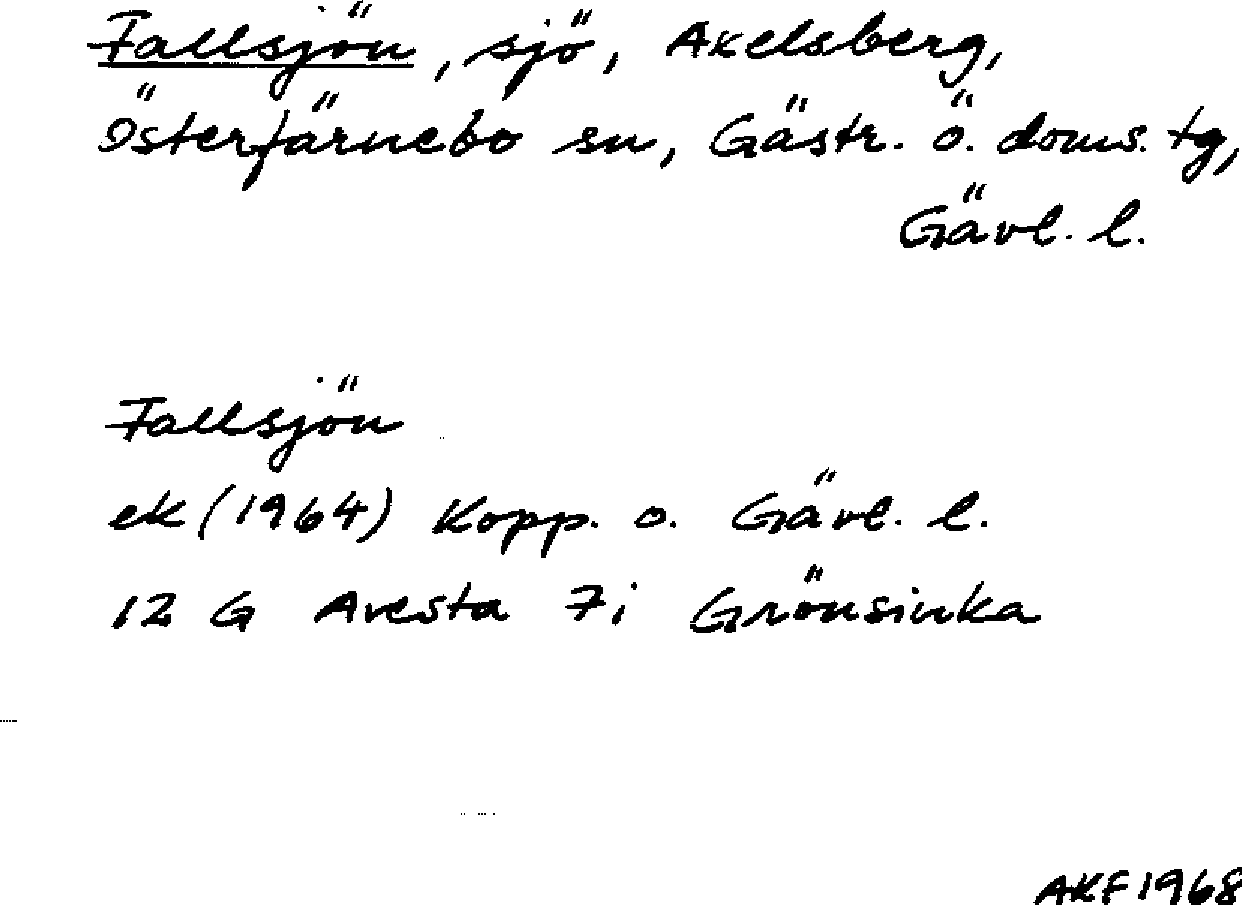 Fallsjön, sjö, Axelsberg,
Österfärnebo sn, Gästr. ö. doms. tg,
Gävl. l.
Fallsjön
ek (1964) Kopp. o. Gävl. l.
12 G Avesta 7i Grönsinka
AKF 1968